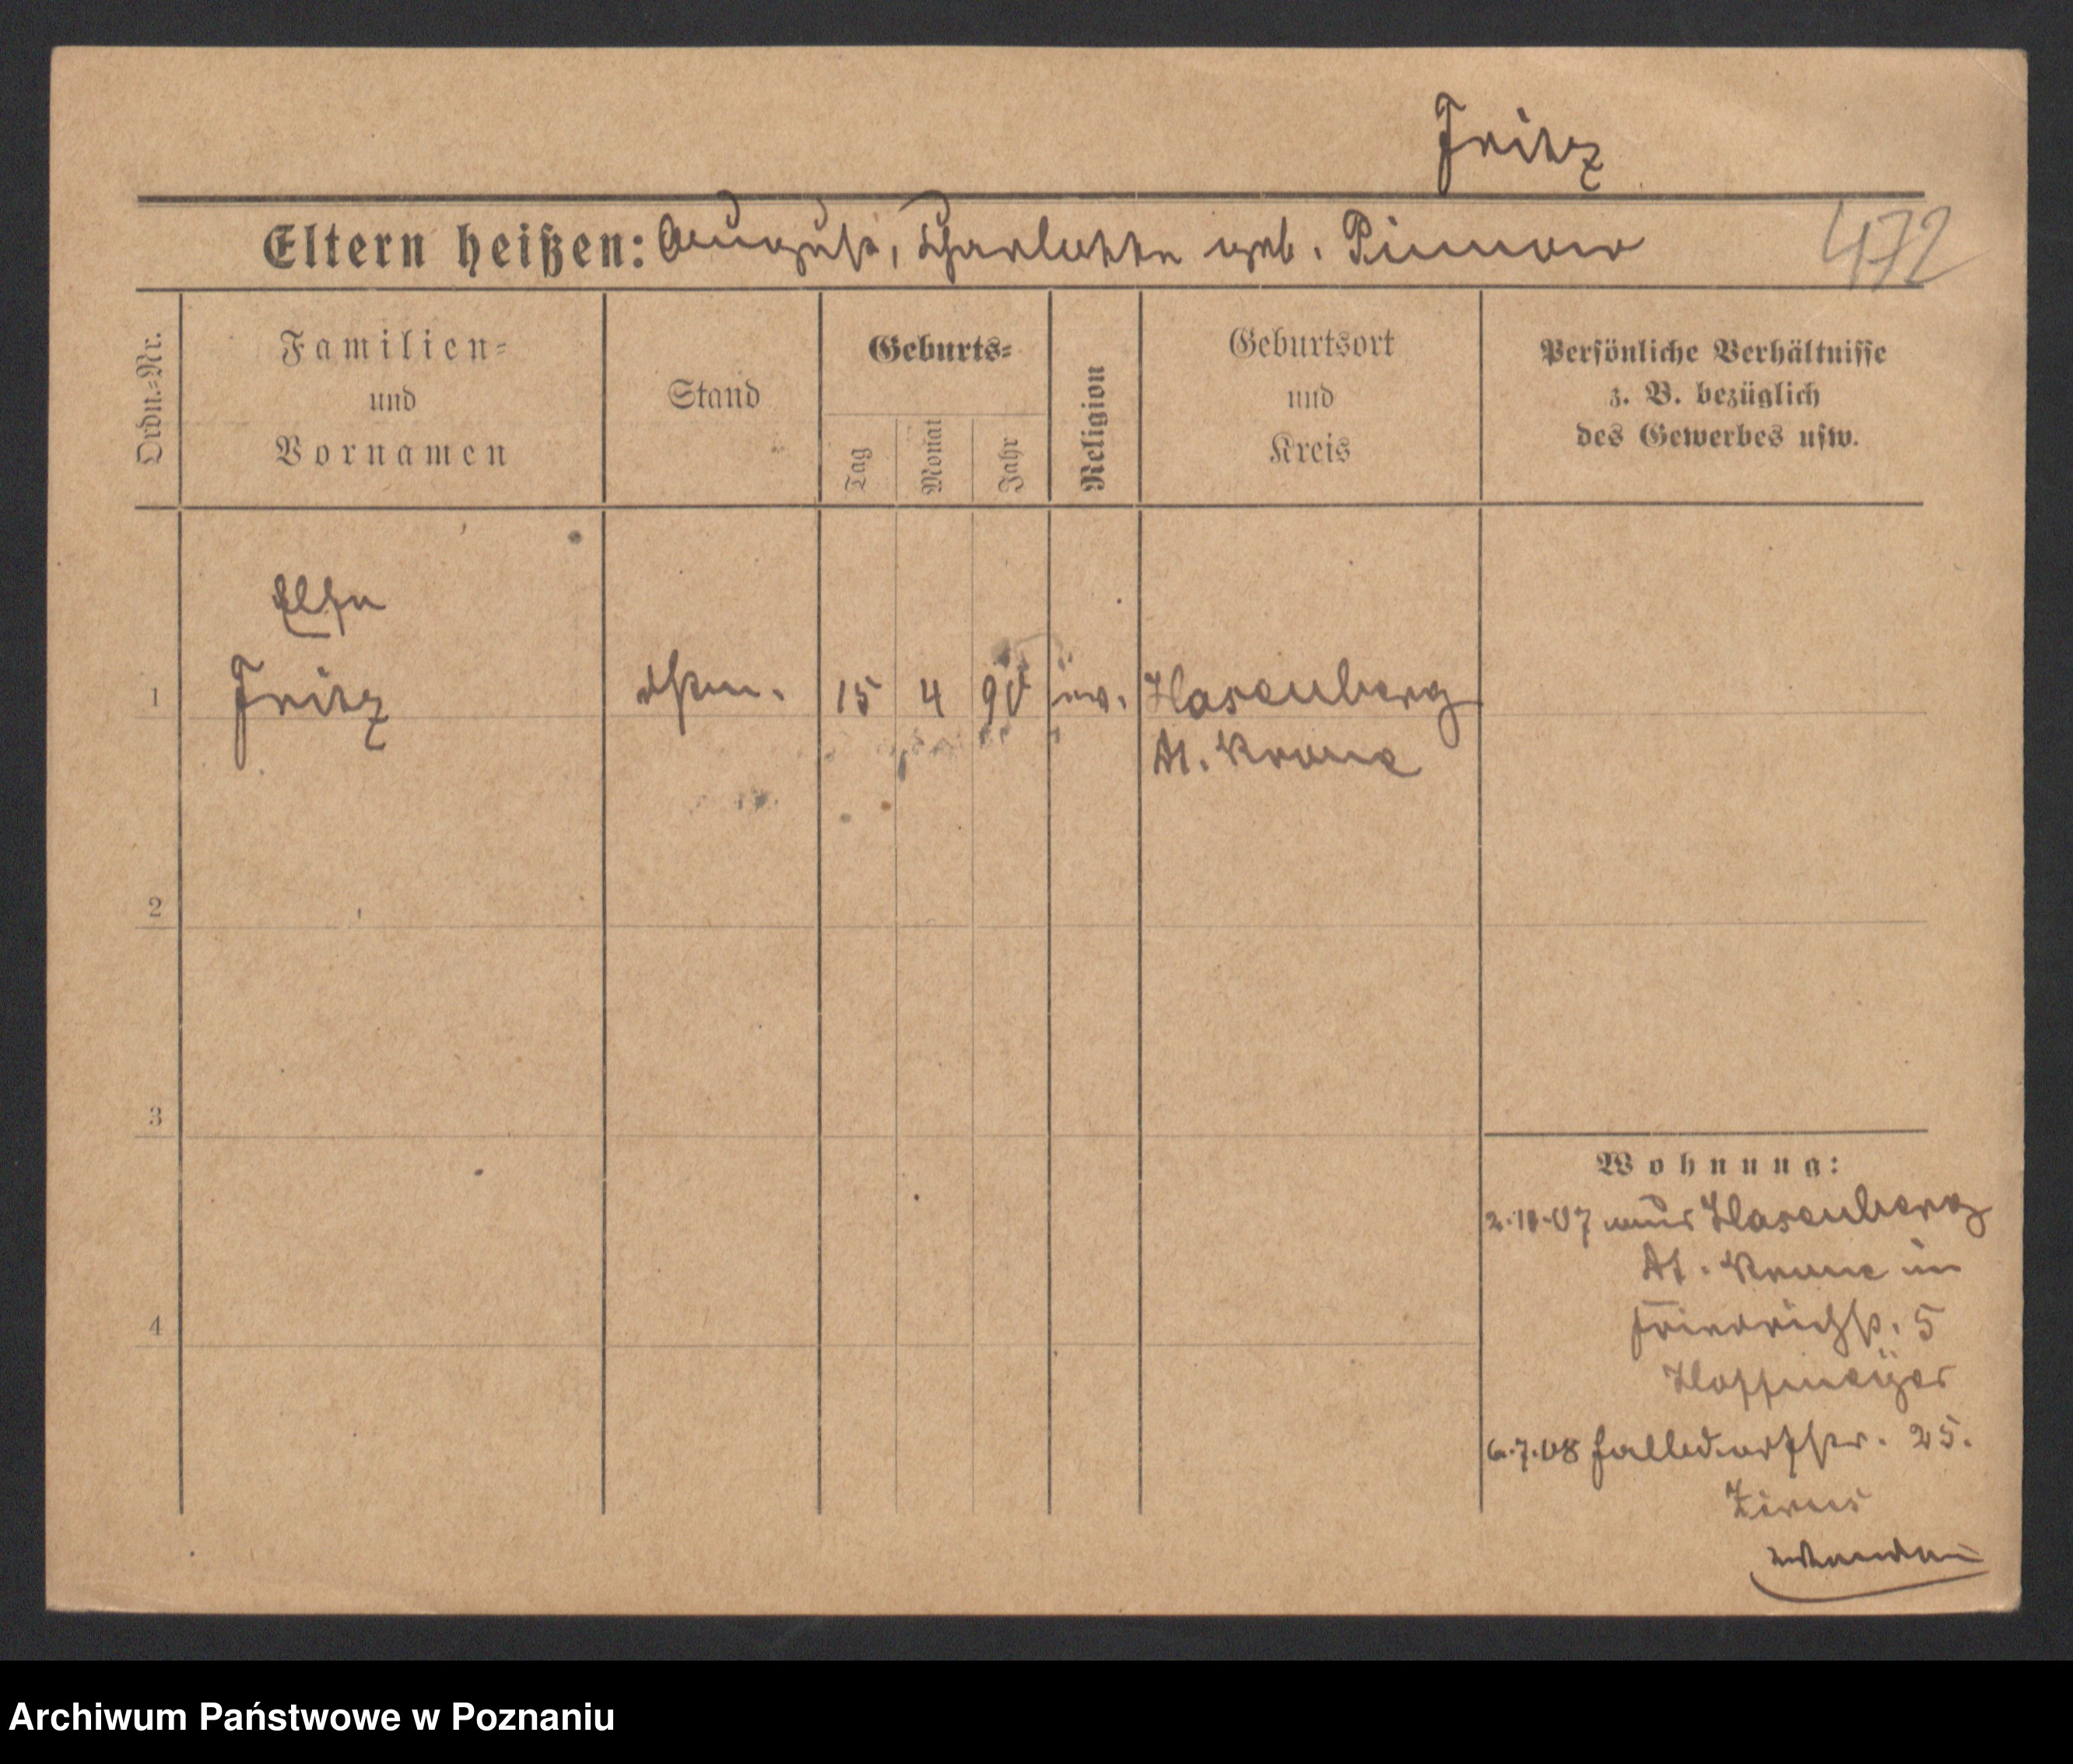 Fritz
Eltern heißen: August, Charlotte geb. Pinnow
472
Ordn.=Nr.
Familien=
und
Vornamen
Stand
Geburts=
Tag
Monat
Jahr
Religion
Geburtsort
und
Kreis
Persönliche Verhältnisse
z. B. bezüglich
des Gewerbes usw.
Else
1 Fritz 15 4 90 ev. Hasenberg
Dt. Krone
2
3
4
Wohnung:
2.10.07 aus Hasenberg
Dt. Krone in
Friedrichstr. 5
Hoffmeyer
6.7.08 25.
wenden
Archiwum Państwowe w Poznaniu